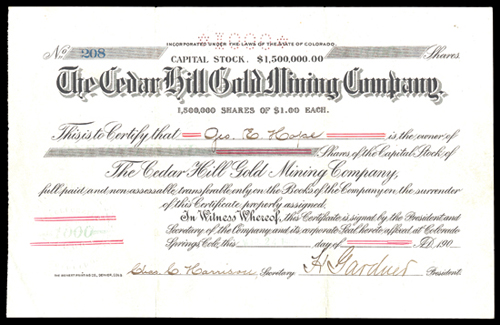 *1000*
INCORPORATED UNDER THE LAWS OF THE STATE OF COLORADO.
No. 208 CAPITAL STOCK. $1,500,000.00 Shares
The Cedar Hill Gold Mining Company.
1,500,000 SHARES OF $1.00 EACH.
This is to Certify that Geo. E. Hope is the owner of
Shares of the Capital Stock of
The Cedar Hill Gold Mining Company,
full paid and non-assessable, transferable only on the Books of the Company on the surrender
of this Certificate properly assigned.
In Witness Whereof, this Certificate is signed by the President and
Secretary of the Company and its corporate Seal hereto affixed at Colorado
1000 Springs, Colo, this day of A.D. 190
Chas. C. Harrison Secretary. H Gardner President.